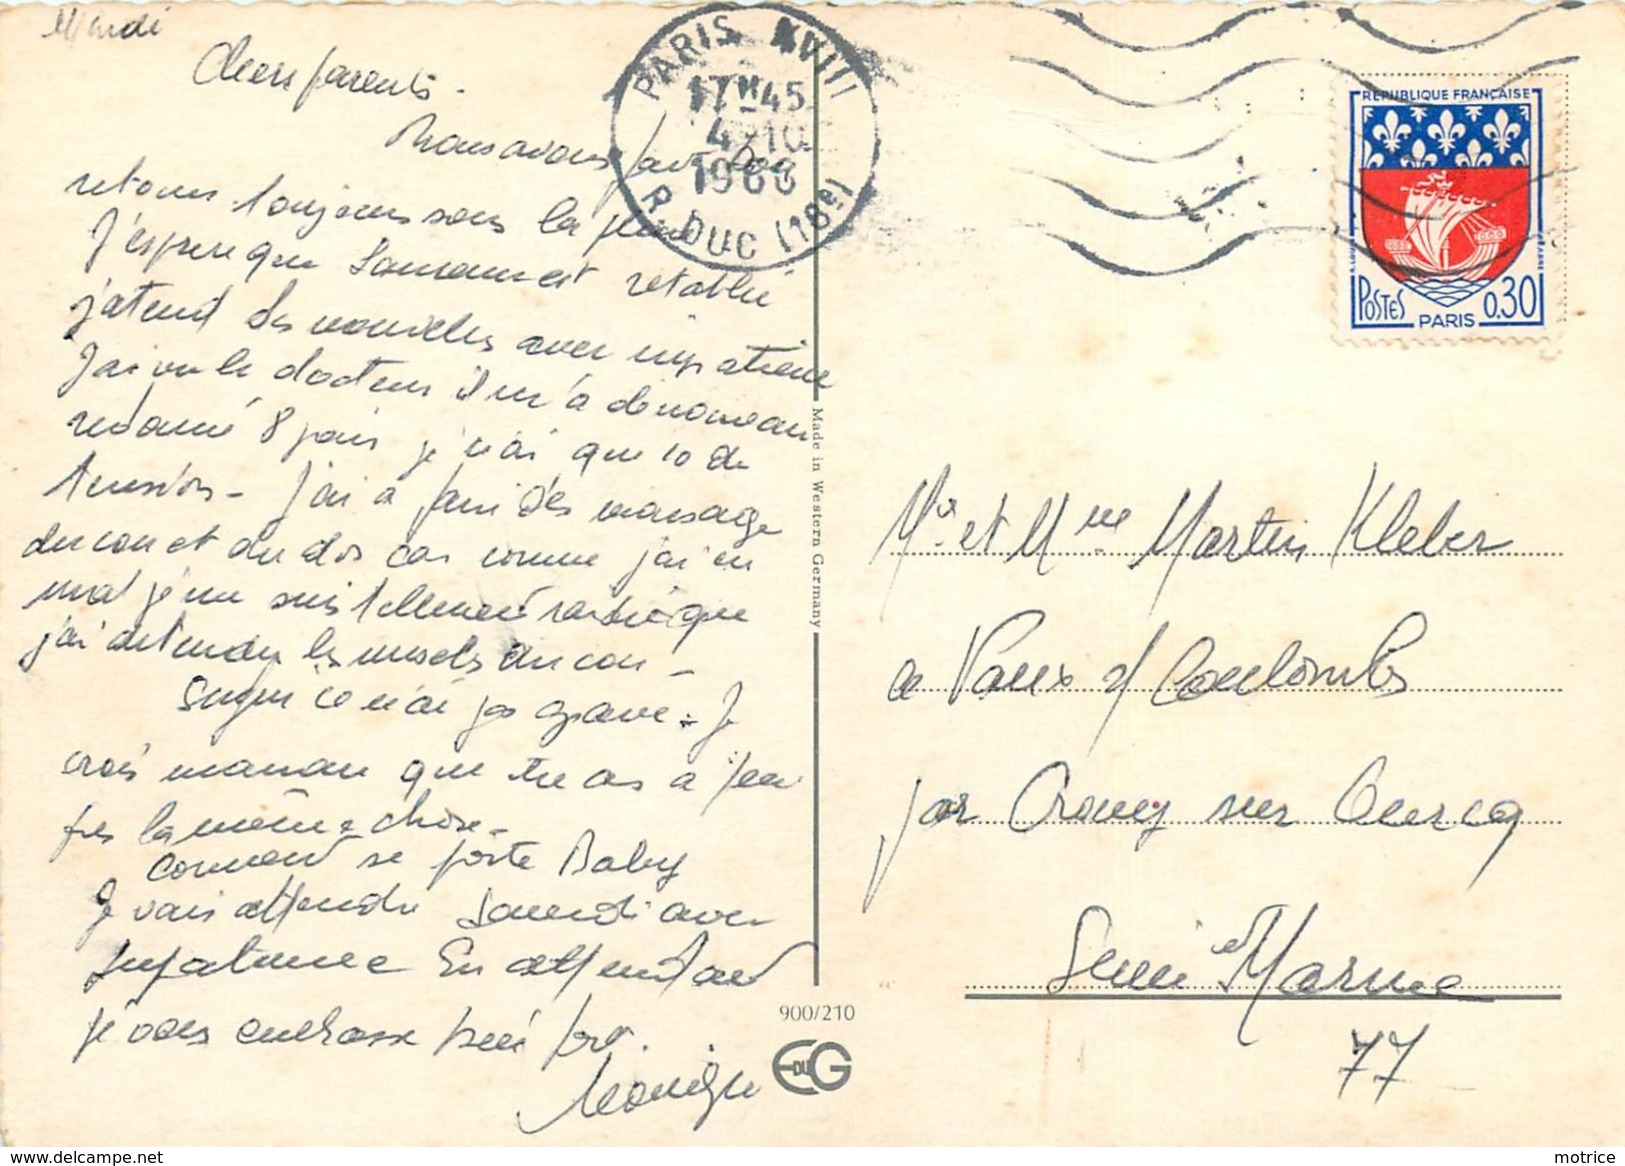 Mardi
Chers parents.
Nous avons fait bon
retour toujours sous la pluie
J'espère que Maman est rétablie
j'atend des nouvelles avec impatience
J'ai vu le docteur il m'a de nouveau
redonné 8 jours je n'ai que 10 de
tension - J'ai a faire des massage
du cou et du dos car comme j'ai eu
mal je me suis tellement raidie que
j'ai distendu les muscles du cou -
ce n'ai pas grave. Je
crois maman que tu as a peu
pres la même chose -
Comment se porte Baby
Je vais attendre Samedi avec
impatience En attendant
je vous embrasse bien fort.
Monique
PARIS XVIII
17H45
4-10
1966
R. DUC (18e)
REPUBLIQUE FRANÇAISE
POSTES
PARIS
0,30
Made in Western Germany
Mr et Mme Martin Kleber
a Vaux s/ Coulombs
par Crouy sur Ourcq
Seine et Marne
77
900/210
EDUG
motrice